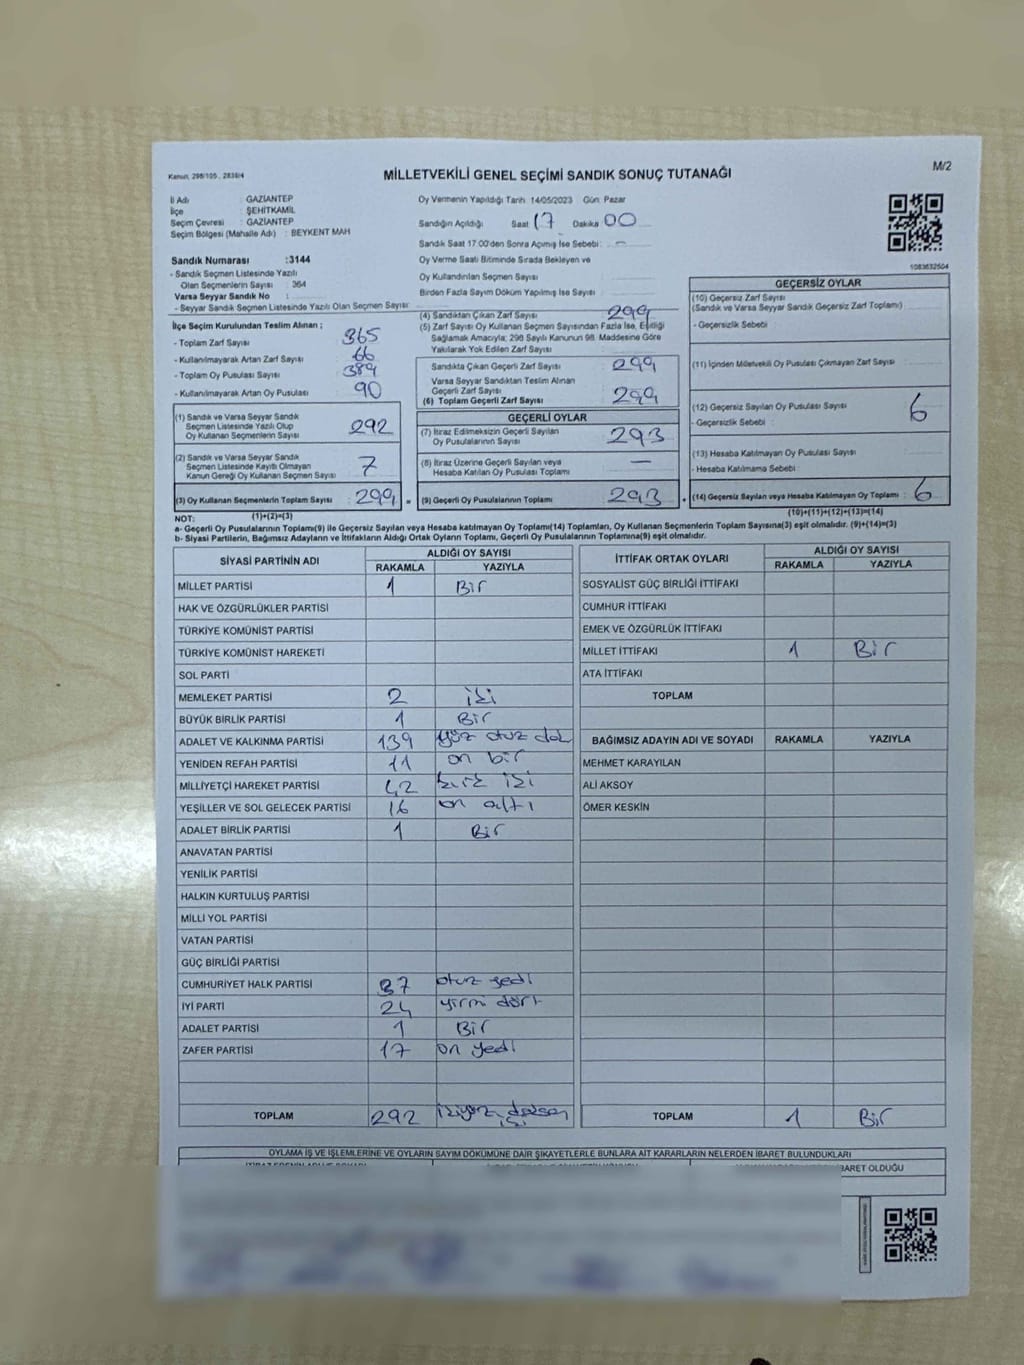 Kanun, 298/105 , 2839/4
MİLLETVEKİLİ GENEL SEÇİMİ SANDIK SONUÇ TUTANAĞI
M/2
İl Adı : GAZİANTEP
İlçe : ŞEHİTKAMİL
Seçim Çevresi : GAZİANTEP
Seçim Bölgesi (Mahalle Adı) : BEYKENT MAH
Sandık Numarası :3144
- Sandık Seçmen Listesinde Yazılı
Olan Seçmenlerin Sayısı : 364
Varsa Seyyar Sandık No :
- Seyyar Sandık Seçmen Listesinde Yazılı Olan Seçmen Sayısı:
Oy Vermenin Yapıldığı Tarih 14/05/2023 Gün: Pazar
Sandığın Açıldığı Saat 17 Dakika 00
Sandık Saat 17.00'den Sonra Açımış İse Sebebi : -
Oy Verme Saati Bitiminde Sırada Bekleyen ve
Oy Kullandırılan Seçmen Sayısı
Birden Fazla Sayım Döküm Yapılmış İse Sayısı
1083632504
İlçe Seçim Kurulundan Teslim Alınan ;
- Toplam Zarf Sayısı 365
- Kullanılmayarak Artan Zarf Sayısı 66
- Toplam Oy Pusulası Sayısı 389
- Kullanılmayarak Artan Oy Pusulası 90
(1) Sandık ve Varsa Seyyar Sandık
Seçmen Listesinde Yazılı Olup
Oy Kullanan Seçmenlerin Sayısı 292
(2) Sandık ve Varsa Seyyar Sandık
Seçmen Listesinde Kayıtlı Olmayan
Kanun Gereği Oy Kullanan Seçmenlerin Sayısı 7
(3) Oy Kullanan Seçmenlerin Toplam Sayısı : 299
(1)+(2)=(3)
(4) Sandıktan Çıkan Zarf Sayısı : 299
(5) Zarf Sayısı Oy Kullanan Seçmen Sayısından Fazla İse, Eşitliği
Sağlamak Amacıyla; 298 Sayılı Kanunun 98. Maddesine Göre
Yakılarak Yok Edilen Zarf Sayısı
Sandıkta Çıkan Geçerli Zarf Sayısı : 299
Varsa Seyyar Sandıktan Teslim Alınan
Geçerli Zarf Sayısı
(6) Toplam Geçerli Zarf Sayısı : 299
GEÇERLİ OYLAR
(7) İtiraz Edilmeksizin Geçerli Sayılan
Oy Pusulalarının Sayısı : 293
(8) İtiraz Üzerine Geçerli Sayılan veya
Hesaba Katılan Oy Pusulası Toplamı —
(9) Geçerli Oy Pusulalarının Toplamı : 293
GEÇERSİZ OYLAR
(10) Geçersiz Zarf Sayısı
(Sandık ve Varsa Seyyar Sandık Geçersiz Zarf Toplamı)
- Geçersizlik Sebebi :
(11) İçinden Milletvekili Oy Pusulası Çıkmayan Zarf Sayısı
(12) Geçersiz Sayılan Oy Pusulası Sayısı 6
- Geçersizlik Sebebi :
(13) Hesaba Katılmayan Oy Pusulası Sayısı
- Hesaba Katılmama Sebebi :
(14) Geçersiz Sayılan veya Hesaba Katılmayan Oy Toplamı : 6
(10)+(11)+(12)+(13)=(14)
NOT:
a- Geçerli Oy Pusulalarının Toplamı(9) ile Geçersiz Sayılan veya Hesaba katılmayan Oy Toplamı(14) Toplamları, Oy Kullanan Seçmenlerin Toplam Sayısına(3) eşit olmalıdır. (9)+(14)=(3)
b- Siyasi Partilerin, Bağımsız Adayların ve İttifakların Aldığı Ortak Oyların Toplamı, Geçerli Oy Pusulalarının Toplamına(9) eşit olmalıdır.
SİYASİ PARTİNİN ADI ALDIĞI OY SAYISI
RAKAMLA YAZIYLA
MİLLET PARTİSİ 1 Bir
HAK VE ÖZGÜRLÜKLER PARTİSİ
TÜRKİYE KOMÜNİST PARTİSİ
TÜRKİYE KOMÜNİST HAREKETİ
SOL PARTİ
MEMLEKET PARTİSİ 2 iki
BÜYÜK BİRLİK PARTİSİ 1 Bir
ADALET VE KALKINMA PARTİSİ 139 yüz otuz dok
YENİDEN REFAH PARTİSİ 11 on bir
MİLLİYETÇİ HAREKET PARTİSİ 42 kırk iki
YEŞİLLER VE SOL GELECEK PARTİSİ 16 on altı
ADALET BİRLİK PARTİSİ 1 Bir
ANAVATAN PARTİSİ
YENİLİK PARTİSİ
HALKIN KURTULUŞ PARTİSİ
MİLLİ YOL PARTİSİ
VATAN PARTİSİ
GÜÇ BİRLİĞİ PARTİSİ
CUMHURİYET HALK PARTİSİ 37 otuz yedi
İYİ PARTİ 24 yirmi dört
ADALET PARTİSİ 1 Bir
ZAFER PARTİSİ 17 on yedi
TOPLAM 292 ikiyüz doksan iki
İTTİFAK ORTAK OYLARI ALDIĞI OY SAYISI
RAKAMLA YAZIYLA
SOSYALİST GÜÇ BİRLİĞİ İTTİFAKI
CUMHUR İTTİFAKI
EMEK VE ÖZGÜRLÜK İTTİFAKI
MİLLET İTTİFAKI 1 Bir
ATA İTTİFAKI
TOPLAM
BAĞIMSIZ ADAYIN ADI VE SOYADI RAKAMLA YAZIYLA
MEHMET KARAYILAN
ALİ AKSOY
ÖMER KESKİN
TOPLAM 1 Bir
OYLAMA İŞ VE İŞLEMLERİNE VE OYLARIN SAYIM DÖKÜMÜNE DAİR ŞİKAYETLERLE BUNLARA AİT KARARLARIN NELERDEN İBARET BULUNDUKLARI
İBARET OLDUĞU